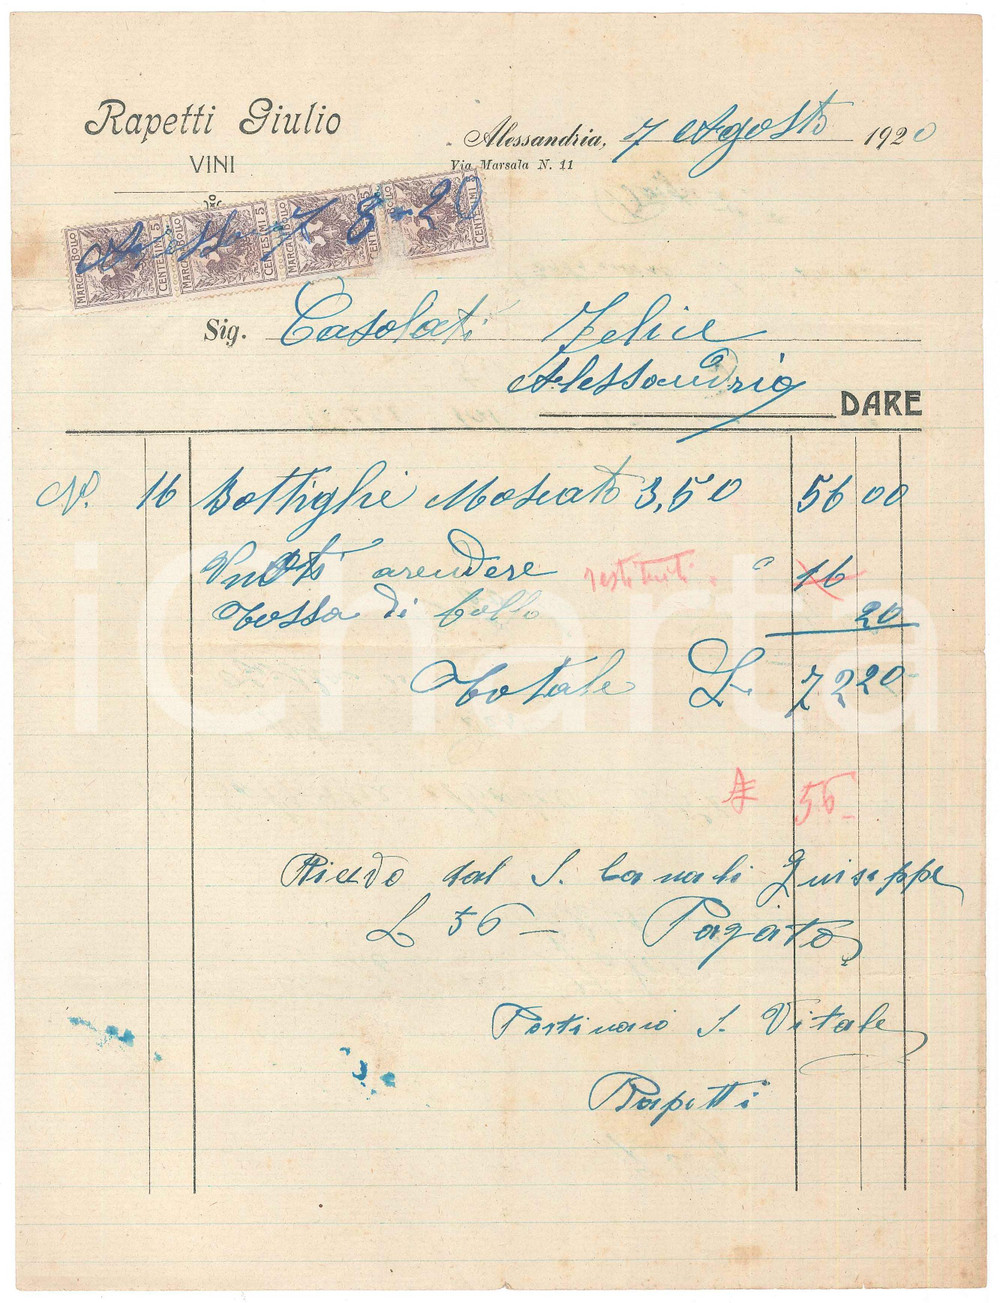 Rapetti Giulio
VINI
Alessandria, 7 Agosto 1920
Via Marsala N. 11
MARCA DA BOLLO CENTESIMI 5 MARCA DA BOLLO CENTESIMI 5 MARCA DA BOLLO CENTESIMI 5 CENTESIMI 5
7 8-20
Sig. Casolati Felice
Alessandria
DARE
N. 16 Bottiglie Moscato 3,50 56 00
Vuoti arendere restituiti " 16
Tassa di bollo 20
Totale L 72 20
56-
dal S. Giuseppe
L 56- Pagato
S. Vitale
Rapetti
iCharta